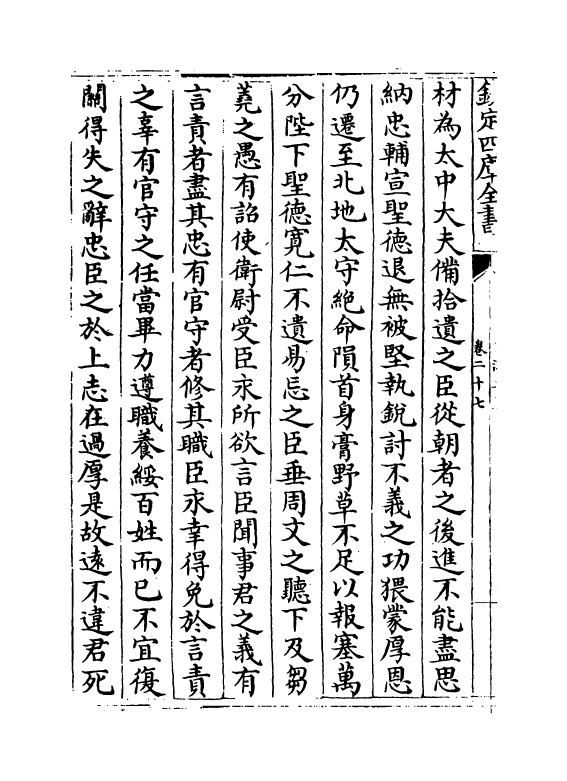 欽定四庫全書
卷二十七
材為太中大夫備拾遺之臣從朝者之後進不能盡思
納忠輔宣聖德退無被堅執銳討不義之功猥蒙厚恩
仍遷至北地太守絶命隕首身膏野草不足以報塞萬
分陛下聖德寛仁不遺易忘之臣垂周文之聽下及芻
蕘之愚有詔使衛尉受臣永所欲言臣聞事君之義有
言責者盡其忠有官守者修其職臣永幸得免於言責
之辜有官守之任當畢力遵職養綏百姓而已不宜復
關得失之辭忠臣之於上志在過厚是故逺不違君死